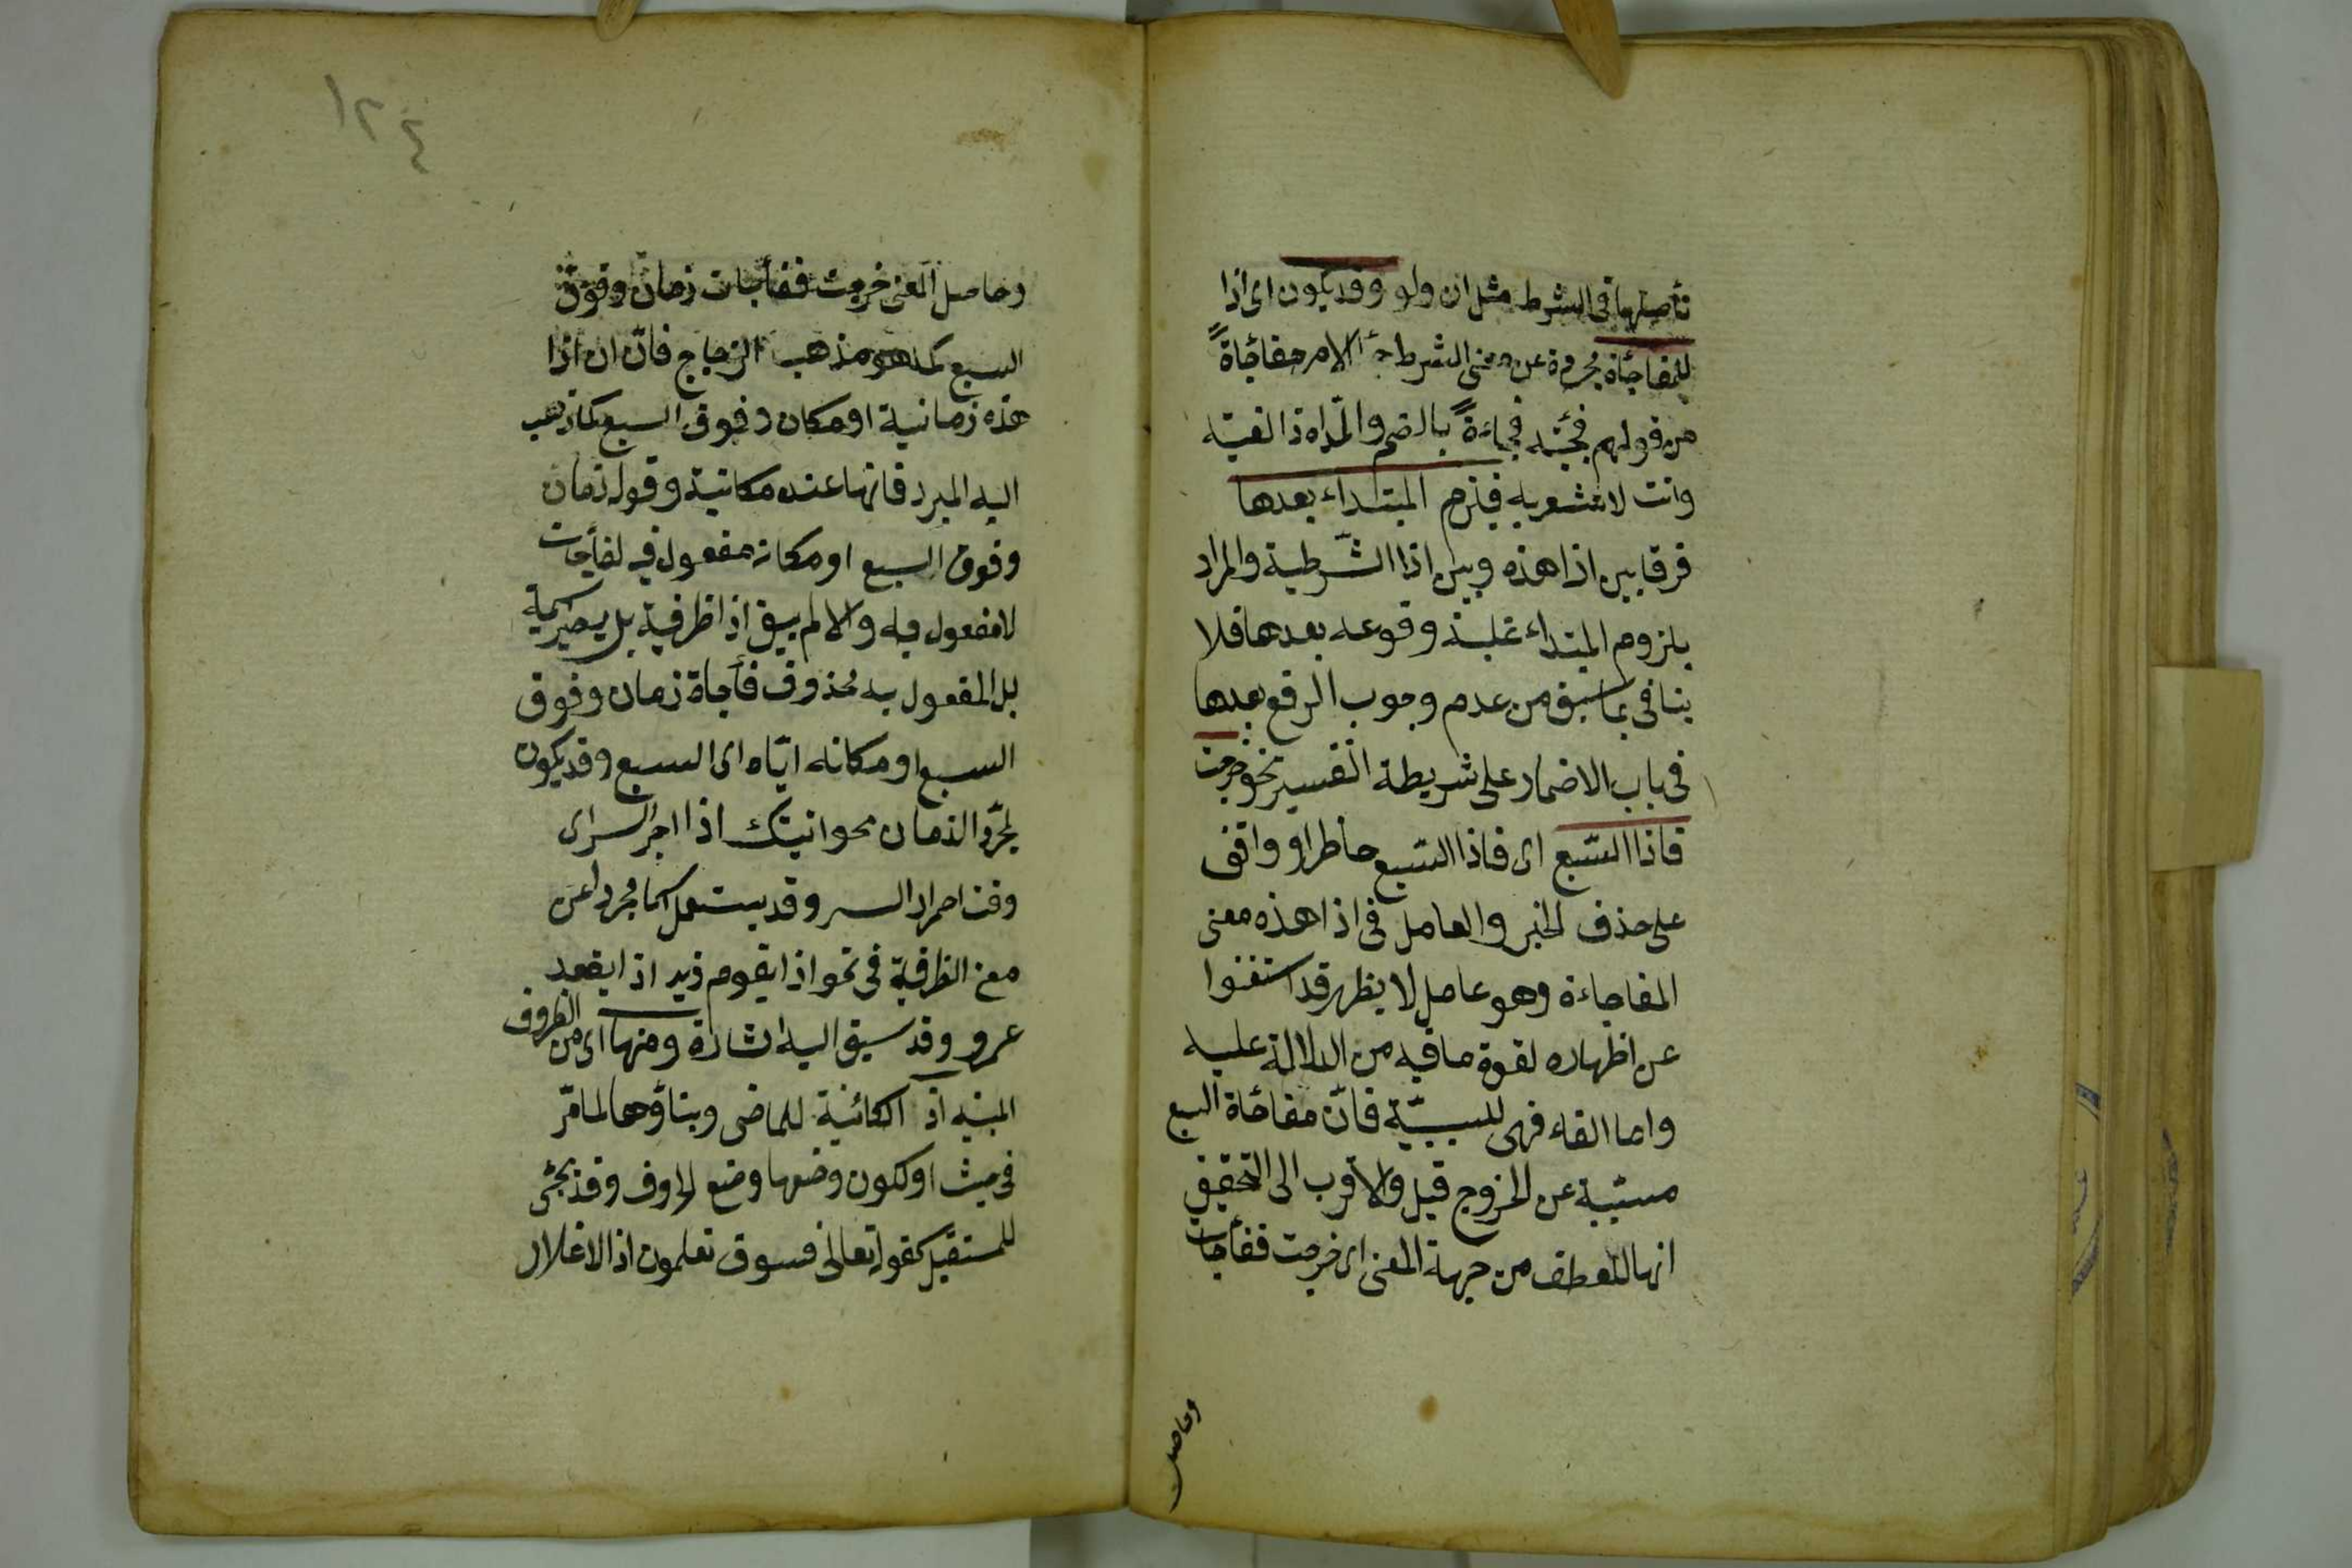 تأصلها فى الشرط مثل ان ولو وقد يكون اى اذا
للمفاجأة مجردة عن معنى الشرط الامر مفاجأة
من قولهم فجئته فجاءة بالضم والمد اذا لقيته
وانت لا تشعر به فيلزم المبتداء بعدها
فرقا بين اذا هذه وبين اذا الشرطية والمراد
بلزوم المبتداء غلبة وقوعه بعدها فلا
ينافى بما سبق من عدم وجوب الرفع بعدها
فى باب الاضمار على شريطة التفسير نحو خرجت
فاذا السبع اى فاذا السبع حاظر او واقف
على حذف الخبر والعامل فى اذا هذه معنى
المفاجاءة وهو عامل لا يظهر قد استغنوا
عن اظهاره لقوة ما فيه من الدلالة عليه
واما الفاء فهى للسببية فان مفاجأة السبع
مسببة عن الخروج قيل والاقرب الى التحقيق
انها للعطف من جهة المعنى اى خرجت ففأجات
وحاصل
١٢٤
وحاصل المعنى خرجت ففأجات زمان وقوف
السبع كما هو مذهب الزجاج فان ان اذا
هذه زمانية او مكان وقوف السبع كما ذهب
اليه المبرد فانها عنده مكانية وقوله زمان
وقوف السبع او مكانه مفعول فيه لفأجات
لا مفعول فيه والا لم يبق اذا ظرفية بل يصير اسمية
بل المفعول به محذوف فأجأة زمان وقوف
السبع او مكانه اياه اى السبع وقد يكون
لمجرد الزمان نحو اتيتك اذا احمر البسر اى
وقت احمرار البسر وقد يستعمل اسما مجردا عن
معنى الظرفية فى نحو اذا يقوم زيد اذا يقعد
عمرو وقد سبق اليه اشارة ومنها اى من الظروف
المبنيه اذ الكائنية للماضى وبناؤها لما مر
فى حيث او لكون وضعها وضع الحروف وقد يجئ
للمستقبل كقوله تعالى فسوف تعلمون اذ الاغلال